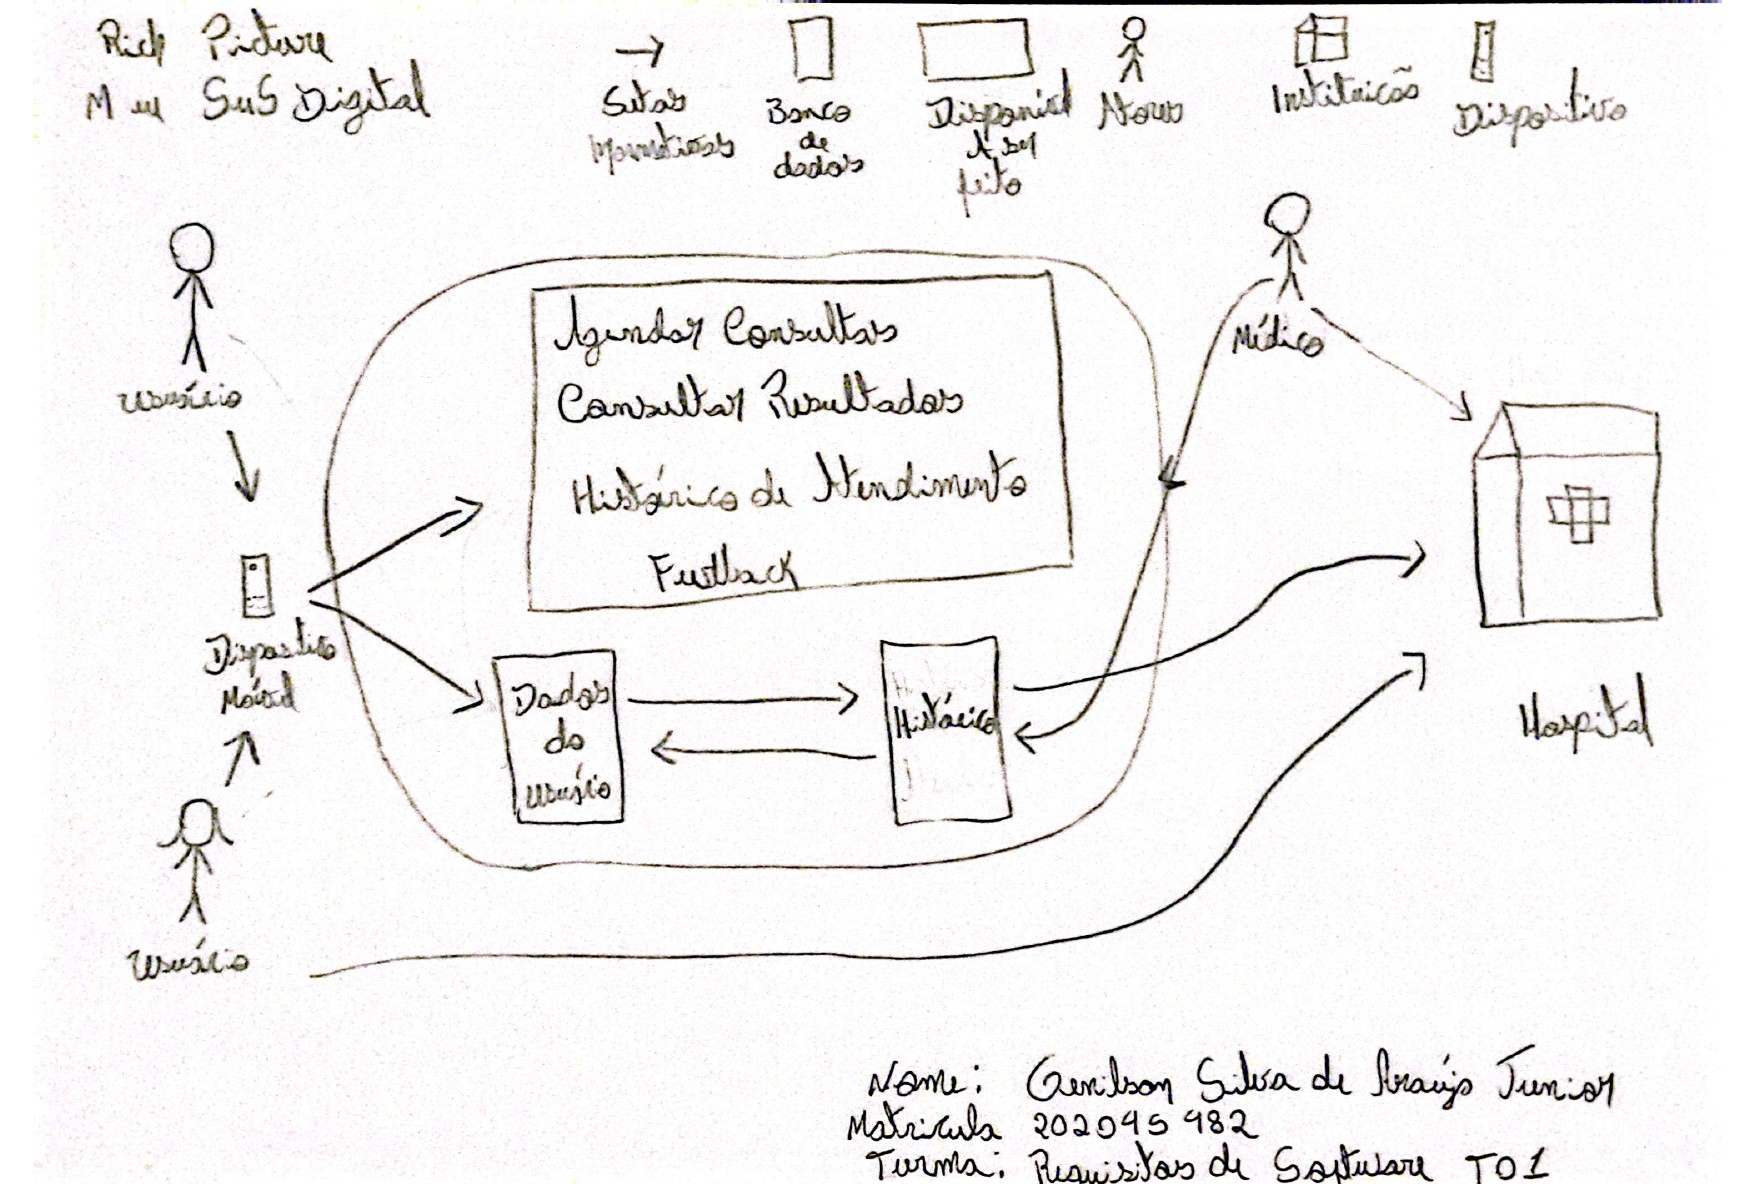 Rich Picture
Meu SuS Digital
Setas
Informativas
Banco
de
dados
Disponível
A ser
feito
Atores
Instituição
Dispositivo
Usuário
Médico
Agendar Consultas
Consultar Resultados
Histórico de Atendimento
Feedback
Dispositivo
Móvel
Dados
do
Usuário
Histórico
Hospital
Usuário
Nome: Genilson Silva de Araújo Junior
Matricula 202045482
Turma: Requisitos de Software T01